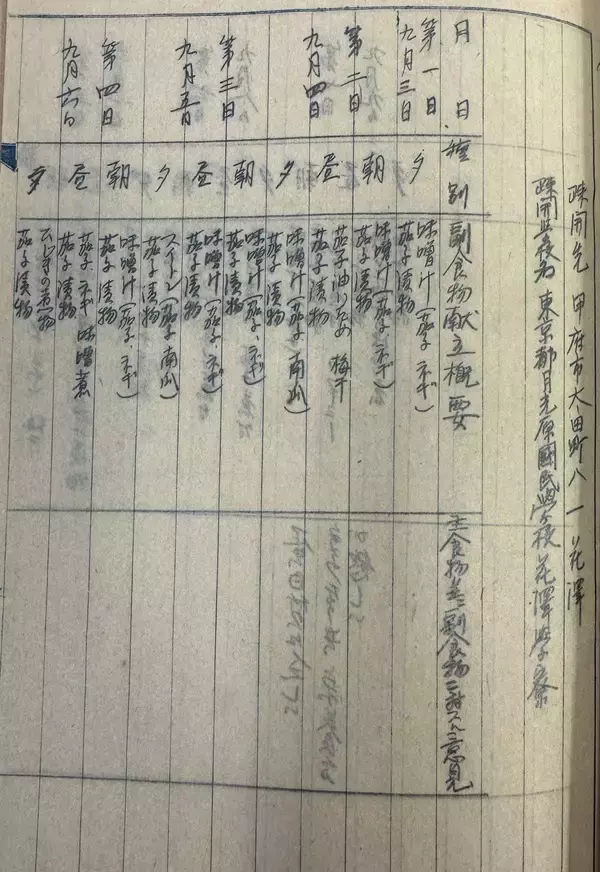 疎開先 甲府市太田町八一 花澤
疎開学校名 東京都月光原國民學校 花澤学寮
月 日 種別 副食物献立概要 主食物並ニ副食物ニ対スル意見
第一日
九月三日 夕 味噌汁(茄子、ネギ)
茄子漬物
第二日 朝 味噌汁(茄子、ネギ)
茄子漬物
九月四日 昼 茄子油いため 梅干
茄子漬物
夕 味噌汁(茄子 南瓜)
茄子漬物
第三日 朝 味噌汁(茄子、ネギ)
九月五日 昼 味噌汁(茄子、ネギ)
茄子漬物
夕 スイトン(茄子 南瓜)
茄子漬物
第四日 朝 味噌汁(茄子、ネギ)
茄子漬物
九月六日 昼 茄子 ネギ 味噌煮
茄子漬物
夕 ひじきの煮物
茄子漬物